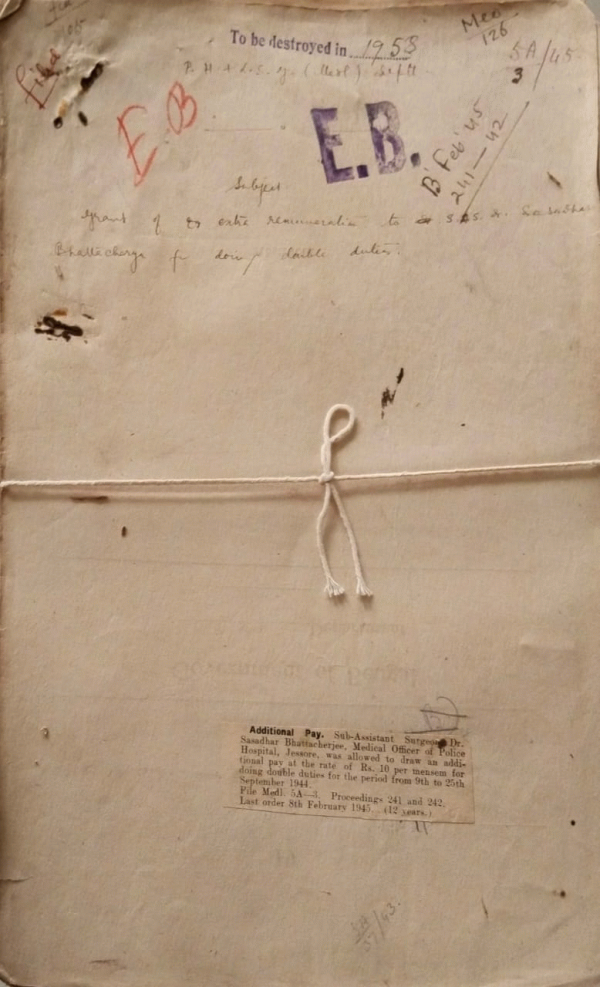 To be destroyed in 1958
Med
126
P. H. & L.S.G. (Medl) Deptt
5A/45
3
Filed
E.B
E.B.
B Feb '45
241–42
Subject
Grant of extra remuneration to S.A.S. Dr. Sasadhar
Bhattacherya for doing double duties.
Department
Government of Bengal
Additional Pay. Sub-Assistant Surgeon Dr.
Sasadhar Bhattacherjee, Medical Officer of Police
Hospital, Jessore, was allowed to draw an addi-
tional pay at the rate of Rs. 10 per mensem for
doing double duties for the period from 9th to 25th
September 1944.
File Medl. 5A—3. Proceedings 241 and 242.
Last order 8th February 1945. (12 years.)